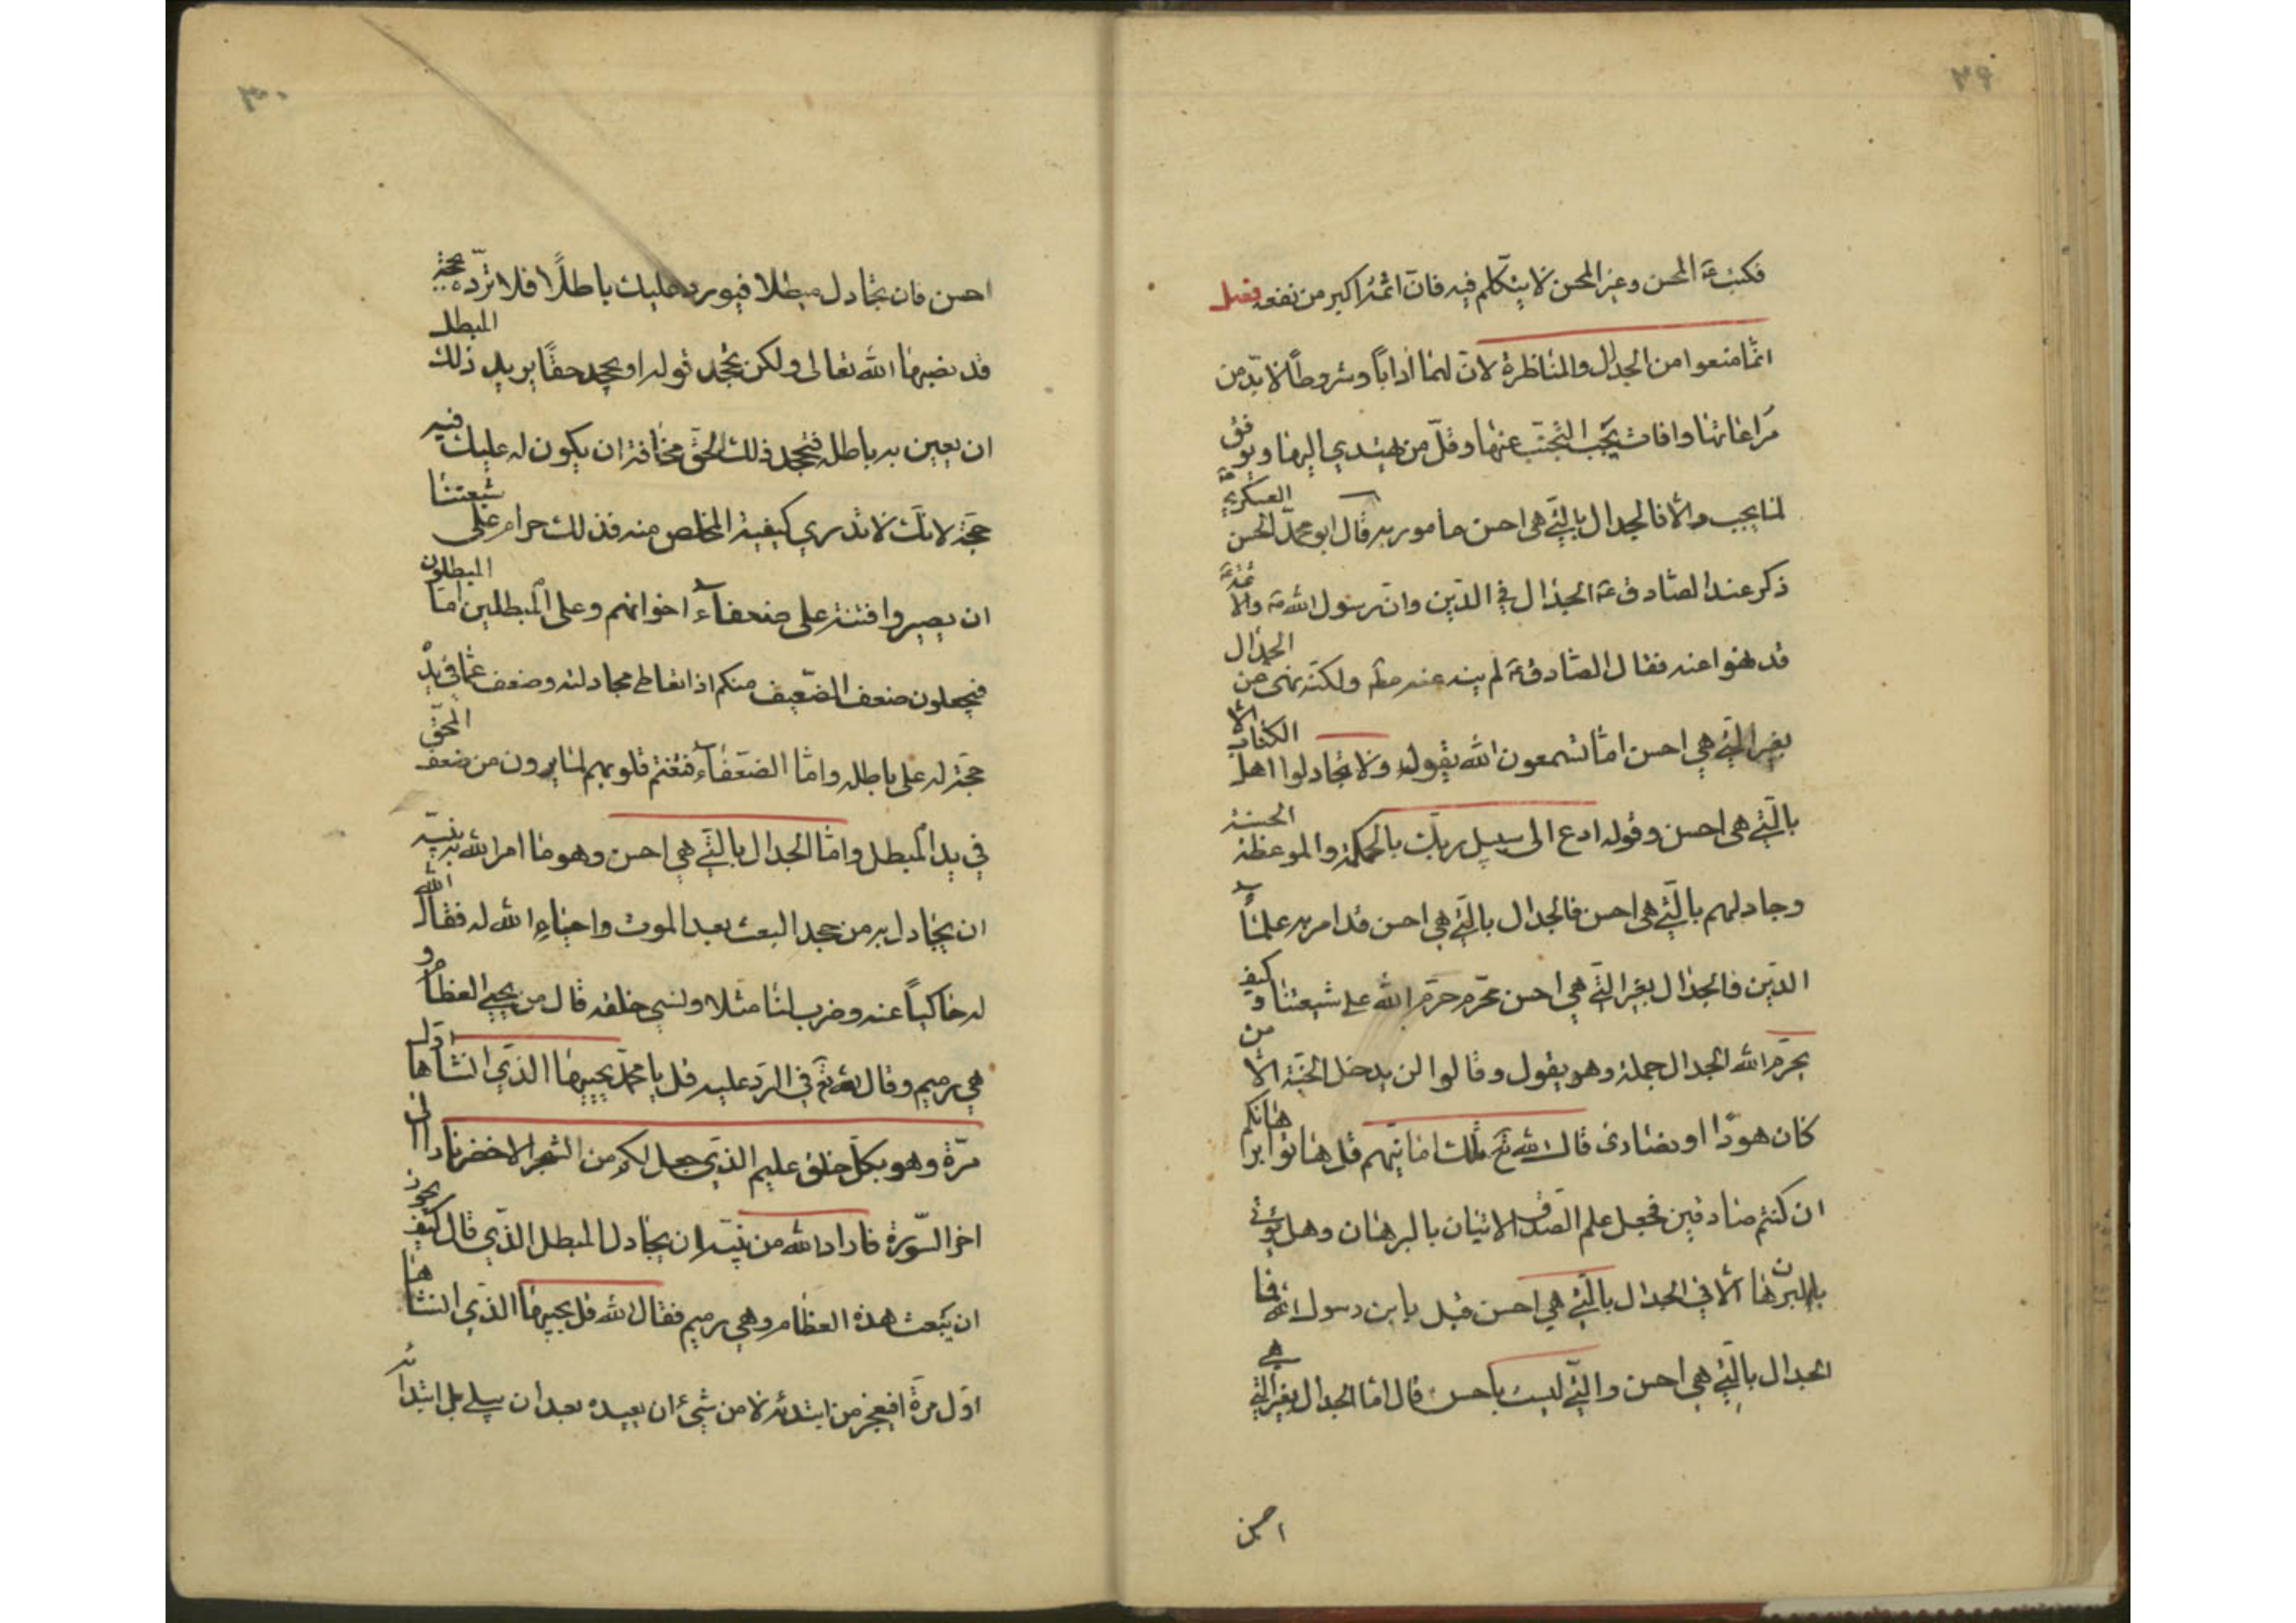 ٢٩
فكتب ع المحسن وغير المحسن لا يتكلم فيه فان اثمه اكبر من نفعه فصل
انما منعوا من الجدال والمناظرة لان لهما اداباً وشروطاً لا بد من
مراعاتها وافات يجب التجنب عنها وقل من يهتدي اليها ويوفق
لما يجب والا فالجدال بالتي هي احسن مامور به قال ابو محمد الحسن العسكري ع
ذكر عند الصادق ع الجدال في الدين وان رسول الله ص والائمة ع
قد نهوا عنه فقال الصادق ع لم ينه عنه مطلقا ولكنه نهى عن الجدال
بغير التي هي احسن اما تسمعون الله يقول ولا تجادلوا اهل الكتاب الا
بالتي هي احسن وقوله ادع الى سبيل ربك بالحكمة والموعظة الحسنة
وجادلهم بالتي هي احسن فالجدال بالتي هي احسن قد امر به علماء
الدين فالجدال بغير التي هي احسن محرم حرم الله على شيعتنا وكيف
يحرم الله الجدال جملة وهو يقول وقالوا لن يدخل الجنة الا من
كان هودا او نصارى قال الله تع تلك امانيهم قل هاتوا برهانكم
ان كنتم صادقين فجعل علم الصدق الاتيان بالبرهان وهل يؤتى
بالبرهان الا في الجدال بالتي هي احسن قيل يا بن رسول الله فما
الجدال بالتي هي احسن والتي ليست باحسن قال اما الجدال بغير التي هي
احسن
٣٠
احسن فان تجادل مبطلا فيورد عليك باطلاً فلا ترده بحجة
قد نصبها الله تعالى ولكن تجحد قوله او تجحد حقاً يريد ذلك المبطل
ان يعين به باطله فتجحد ذلك الحق مخافة ان يكون له عليك فيه
حجة لانك لا تدري كيفية المخلص منه فذلك حرام على شيعتنا
ان يصيروا فتنة على ضعفاء اخوانهم وعلى المبطلين اما المبطلون
فيجعلون ضعف الضعيف منكم اذا تعاطى مجادلته وضعف عما في يده
حجة له على باطله واما الضعفاء فتغتم قلوبهم لما يرون من ضعف المحق
في يد المبطل واما الجدال بالتي هي احسن وهو ما امر الله به نبيه
ان يجادل به من جحد البعث بعد الموت واحياء الله له فقال الله
له حاكياً عنه وضرب لنا مثلا ونسي خلقه قال من يحيي العظام و
هي رميم وقال الله تع في الرد عليه قل يا محمد يحييها الذي انشاها اول
مرة وهو بكل خلق عليم الذي جعل لكم من الشجر الاخضر نارا الى
اخر السورة فاراد الله من نبيه ان يجادل المبطل الذي قال كيف يجوز
ان يبعث هذه العظام وهي رميم فقال الله قل يحييها الذي انشاها
اول مرة افيعجز من ابتدئه لا من شيء ان يعيده بعد ان يبلى بل ابتداؤه